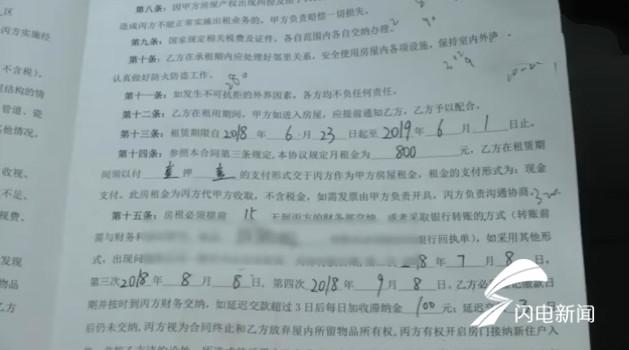 区
第八条：因甲方房屋产权出现纠纷及
造成丙方不能正常实施出租业务的，甲方负责赔偿一切损失。
丙方实施经
第九条：国家规定相关税费及证件，各自范围内各自交纳办理。
第十条：乙方在承租期内应处理好邻里关系，安全使用房屋内各项设施，保持室内外
不含税）。
认真做好防火防盗工作。
屋结构的情
第十一条：如发生不可抗拒的外界因素，各方均不负任何责任。
管道、瓷
第十二条：乙方在租用期间，甲方如进入房屋，应提前通知乙方，乙方予以配合。
其他情况。
第十三条：租赁期限自2018年6月23日起至2019年6月1日止。
第十四条：参照本合同第三条规定，本协议规定月租金为800元，乙方在租赁期
间须以付壹押壹的支付形式交于丙方作为甲方房屋租金，租金的支付形式为：现金
收视、
支付。此房租金为丙方代甲方收取，不含税金，如需发票由甲方负责开具，丙方负责沟通协商。
不足、
第十五条：房租必须提前15天到丙方的财务部交纳，或者采取银行转账的方式（转账前
税费、
需与财务 银行回执单），如采用其他形
式，出现问 年7月8日，
发现
第三次2018年8月8日，第四次2018年9月8日，乙方必 缴款日
物品
期并按时到丙方财务交纳，如延迟交款超过3日后每日加收滞纳金100元；延迟交
后仍未交纳，丙方视为合同终止和乙方放弃屋内所留物品所有权，丙方有权开启房门接纳新住户入
闪电新闻